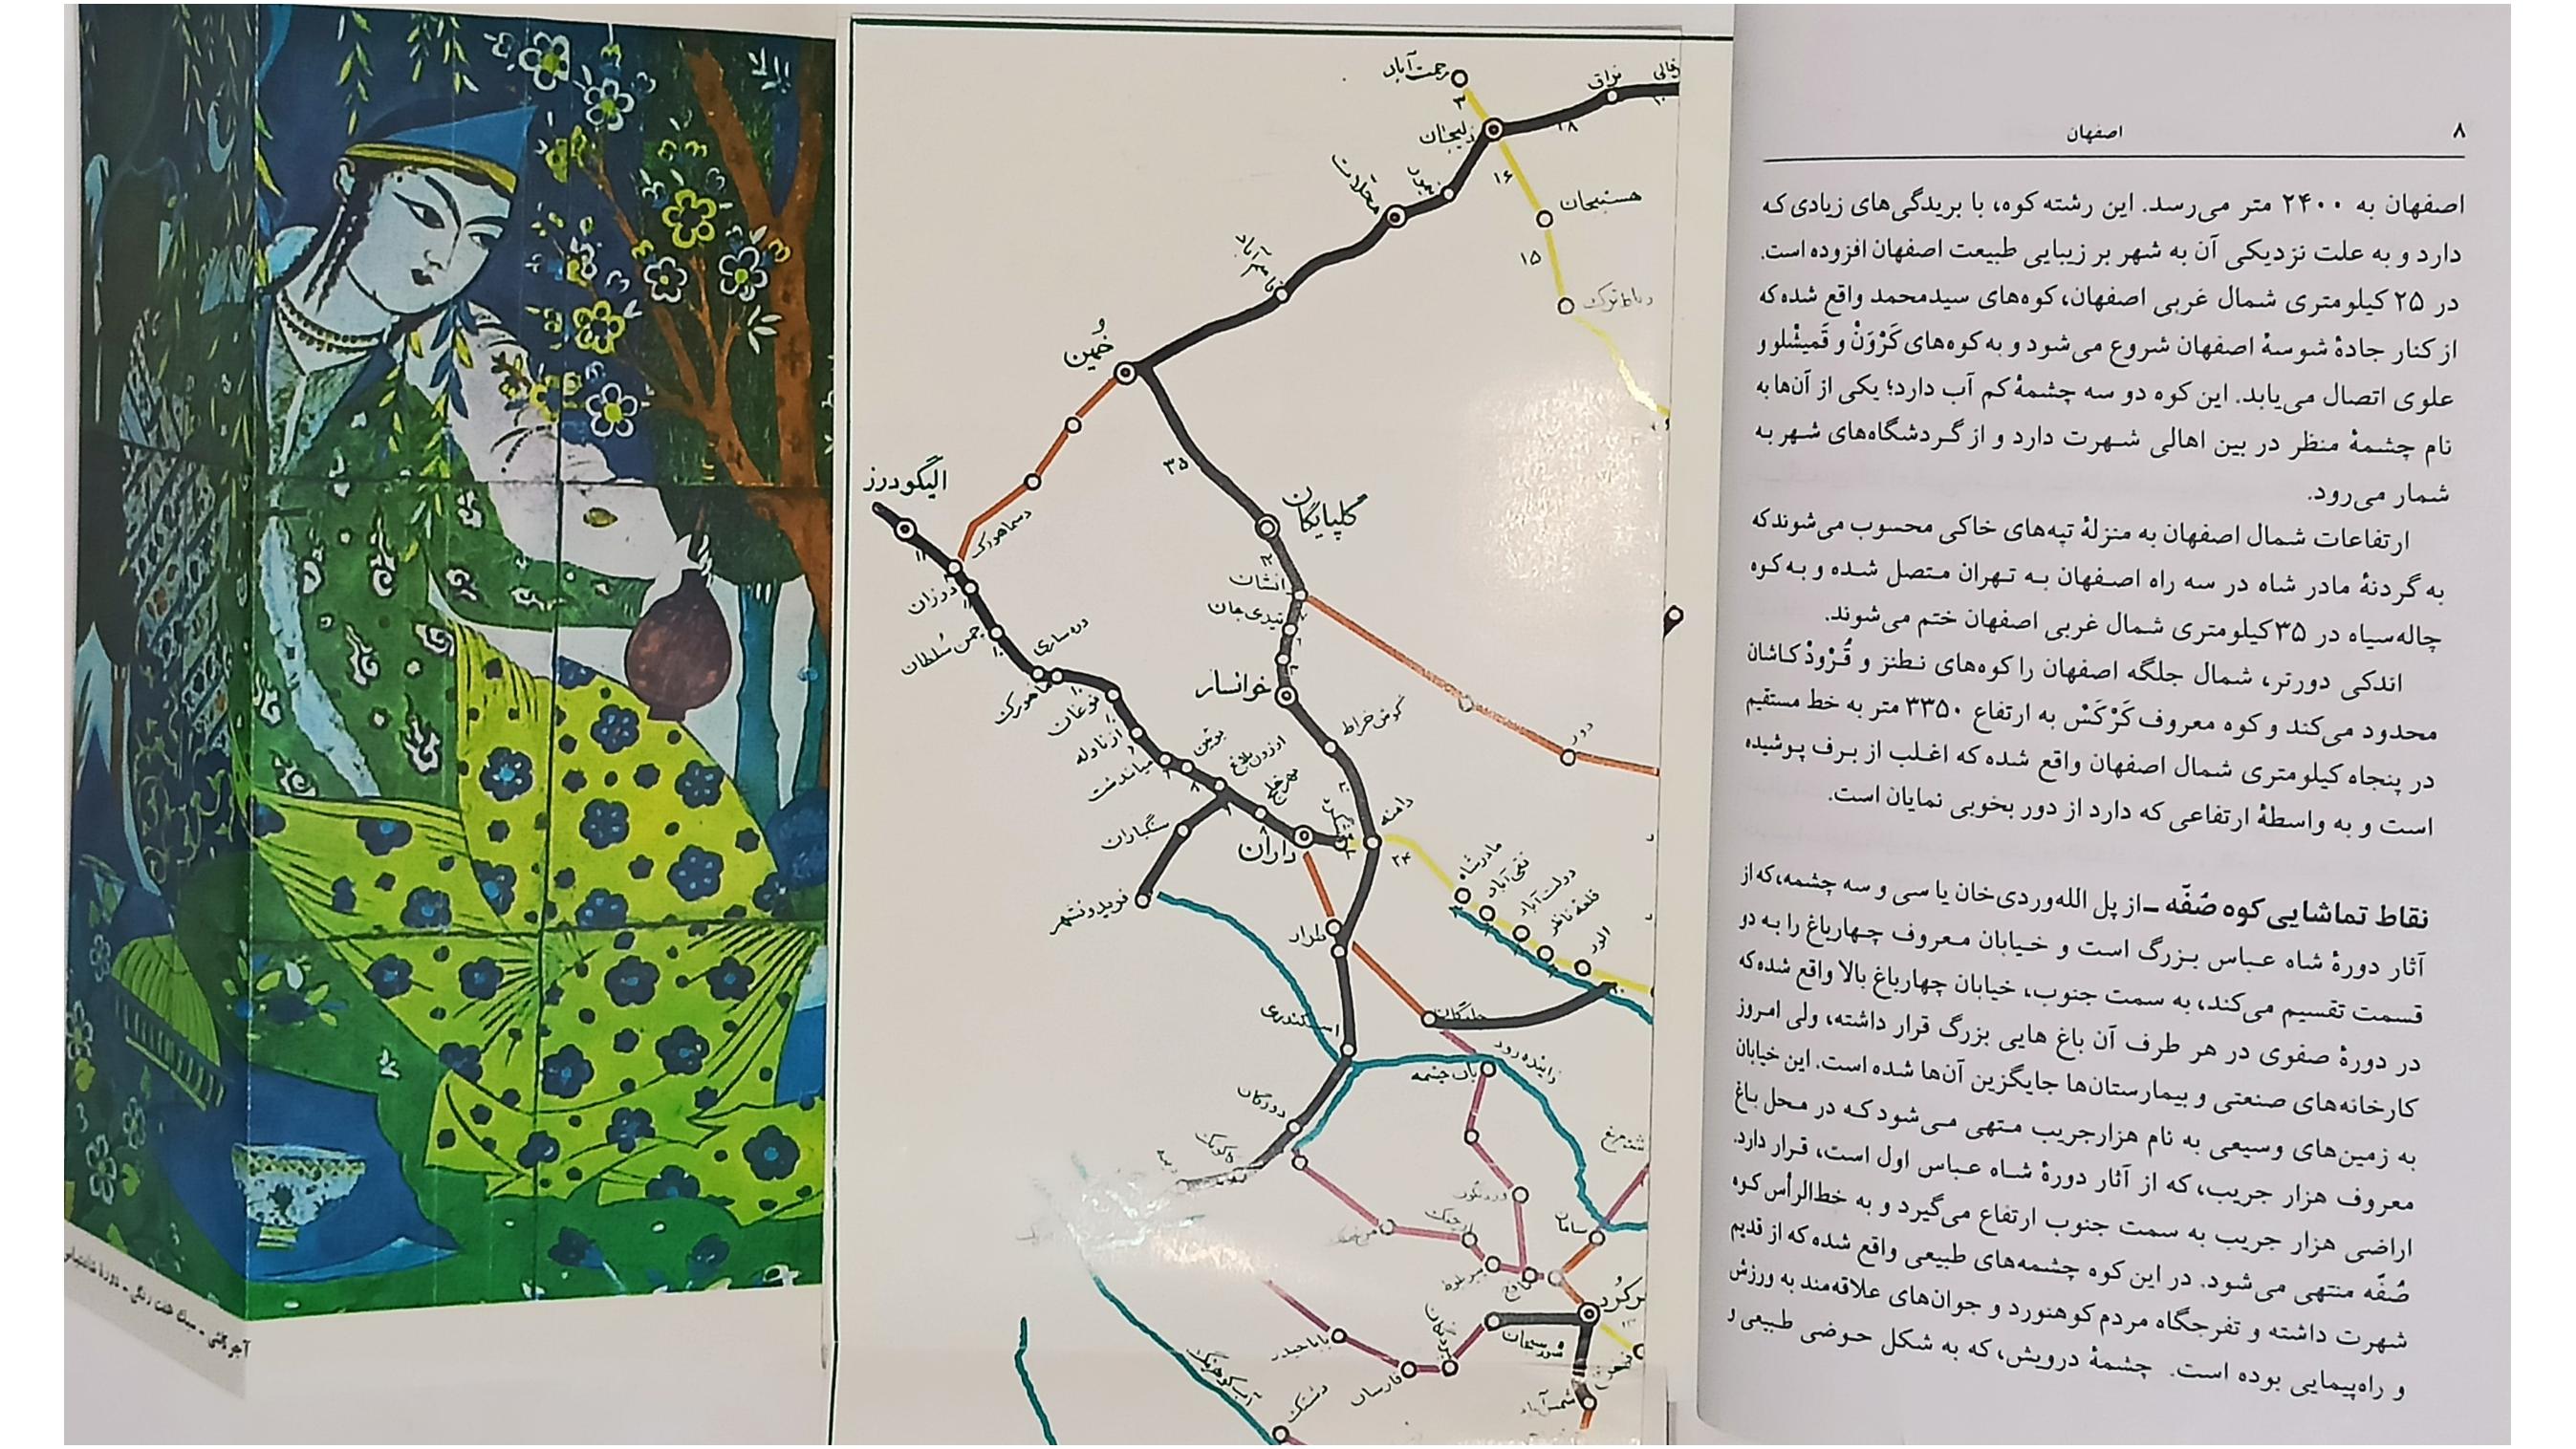 ۸
اصفهان
اصفهان به ۲۴۰۰ متر می‌رسد. این رشته کوه، با بریدگی‌های زیادی که
دارد و به علت نزدیکی آن به شهر بر زیبایی طبیعت اصفهان افزوده است.
در ۲۵ کیلومتری شمال غربی اصفهان، کوه‌های سیدمحمد واقع شده که
از کنار جادهٔ شوسهٔ اصفهان شروع می‌شود و به کوه‌های کَرْوَنْ و قَمیشْلو و
علوی اتصال می‌یابد. این کوه دو سه چشمهٔ کم آب دارد؛ یکی از آن‌ها به
نام چشمهٔ منظر در بین اهالی شهرت دارد و از گردشگاه‌های شهر به
شمار می‌رود.
ارتفاعات شمال اصفهان به منزلهٔ تپه‌های خاکی محسوب می‌شوند که
به گردنهٔ مادر شاه در سه راه اصفهان به تهران متصل شده و به کوه
چاله‌سیاه در ۳۵ کیلومتری شمال غربی اصفهان ختم می‌شوند.
اندکی دورتر، شمال جلگه اصفهان را کوه‌های نطنز و قُرْودْ کاشان
محدود می‌کند و کوه معروف کَرْکَسْ به ارتفاع ۳۳۵۰ متر به خط مستقیم
در پنجاه کیلومتری شمال اصفهان واقع شده که اغلب از برف پوشیده
است و به واسطهٔ ارتفاعی که دارد از دور بخوبی نمایان است.
نقاط تماشایی کوه صُفّه ـ از پل الله‌وردی‌خان یا سی و سه چشمه، که از
آثار دورهٔ شاه عباس بزرگ است و خیابان معروف چهارباغ را به دو
قسمت تقسیم می‌کند، به سمت جنوب، خیابان چهارباغ بالا واقع شده که
در دورهٔ صفوی در هر طرف آن باغ هایی بزرگ قرار داشته، ولی امروز
کارخانه‌های صنعتی و بیمارستان‌ها جایگزین آن‌ها شده است. این خیابان
به زمین‌های وسیعی به نام هزارجریب منتهی می‌شود که در محل باغ
معروف هزار جریب، که از آثار دورهٔ شاه عباس اول است، قرار دارد.
اراضی هزار جریب به سمت جنوب ارتفاع می‌گیرد و به خط‌الرأس کوه
صُفّه منتهی می‌شود. در این کوه چشمه‌های طبیعی واقع شده که از قدیم
شهرت داشته و تفرجگاه مردم کوهنورد و جوان‌های علاقه‌مند به ورزش
و راه‌پیمایی بوده است. چشمهٔ درویش، که به شکل حوضی طبیعی و
رحمت‌آباد
نراق
دلیجان
۱۶
هستیجان
۱۵
رباط ترک
محلات
خُمین
۳۵
گلپایگان
الیگودرز
درزان
چمن سُلطان
دره ساری
خوانسار
دور
دامنه
۲۴
میاندشت
سنگباران
داران
فریدونشهر
مادرشاه
دولت‌آباد
قلعهٔ ناظر
الور
اسکندری
زاینده رود
سامان
باباحیدر
فارسان
دشتک
آب کوهرنگ
شمس‌آباد